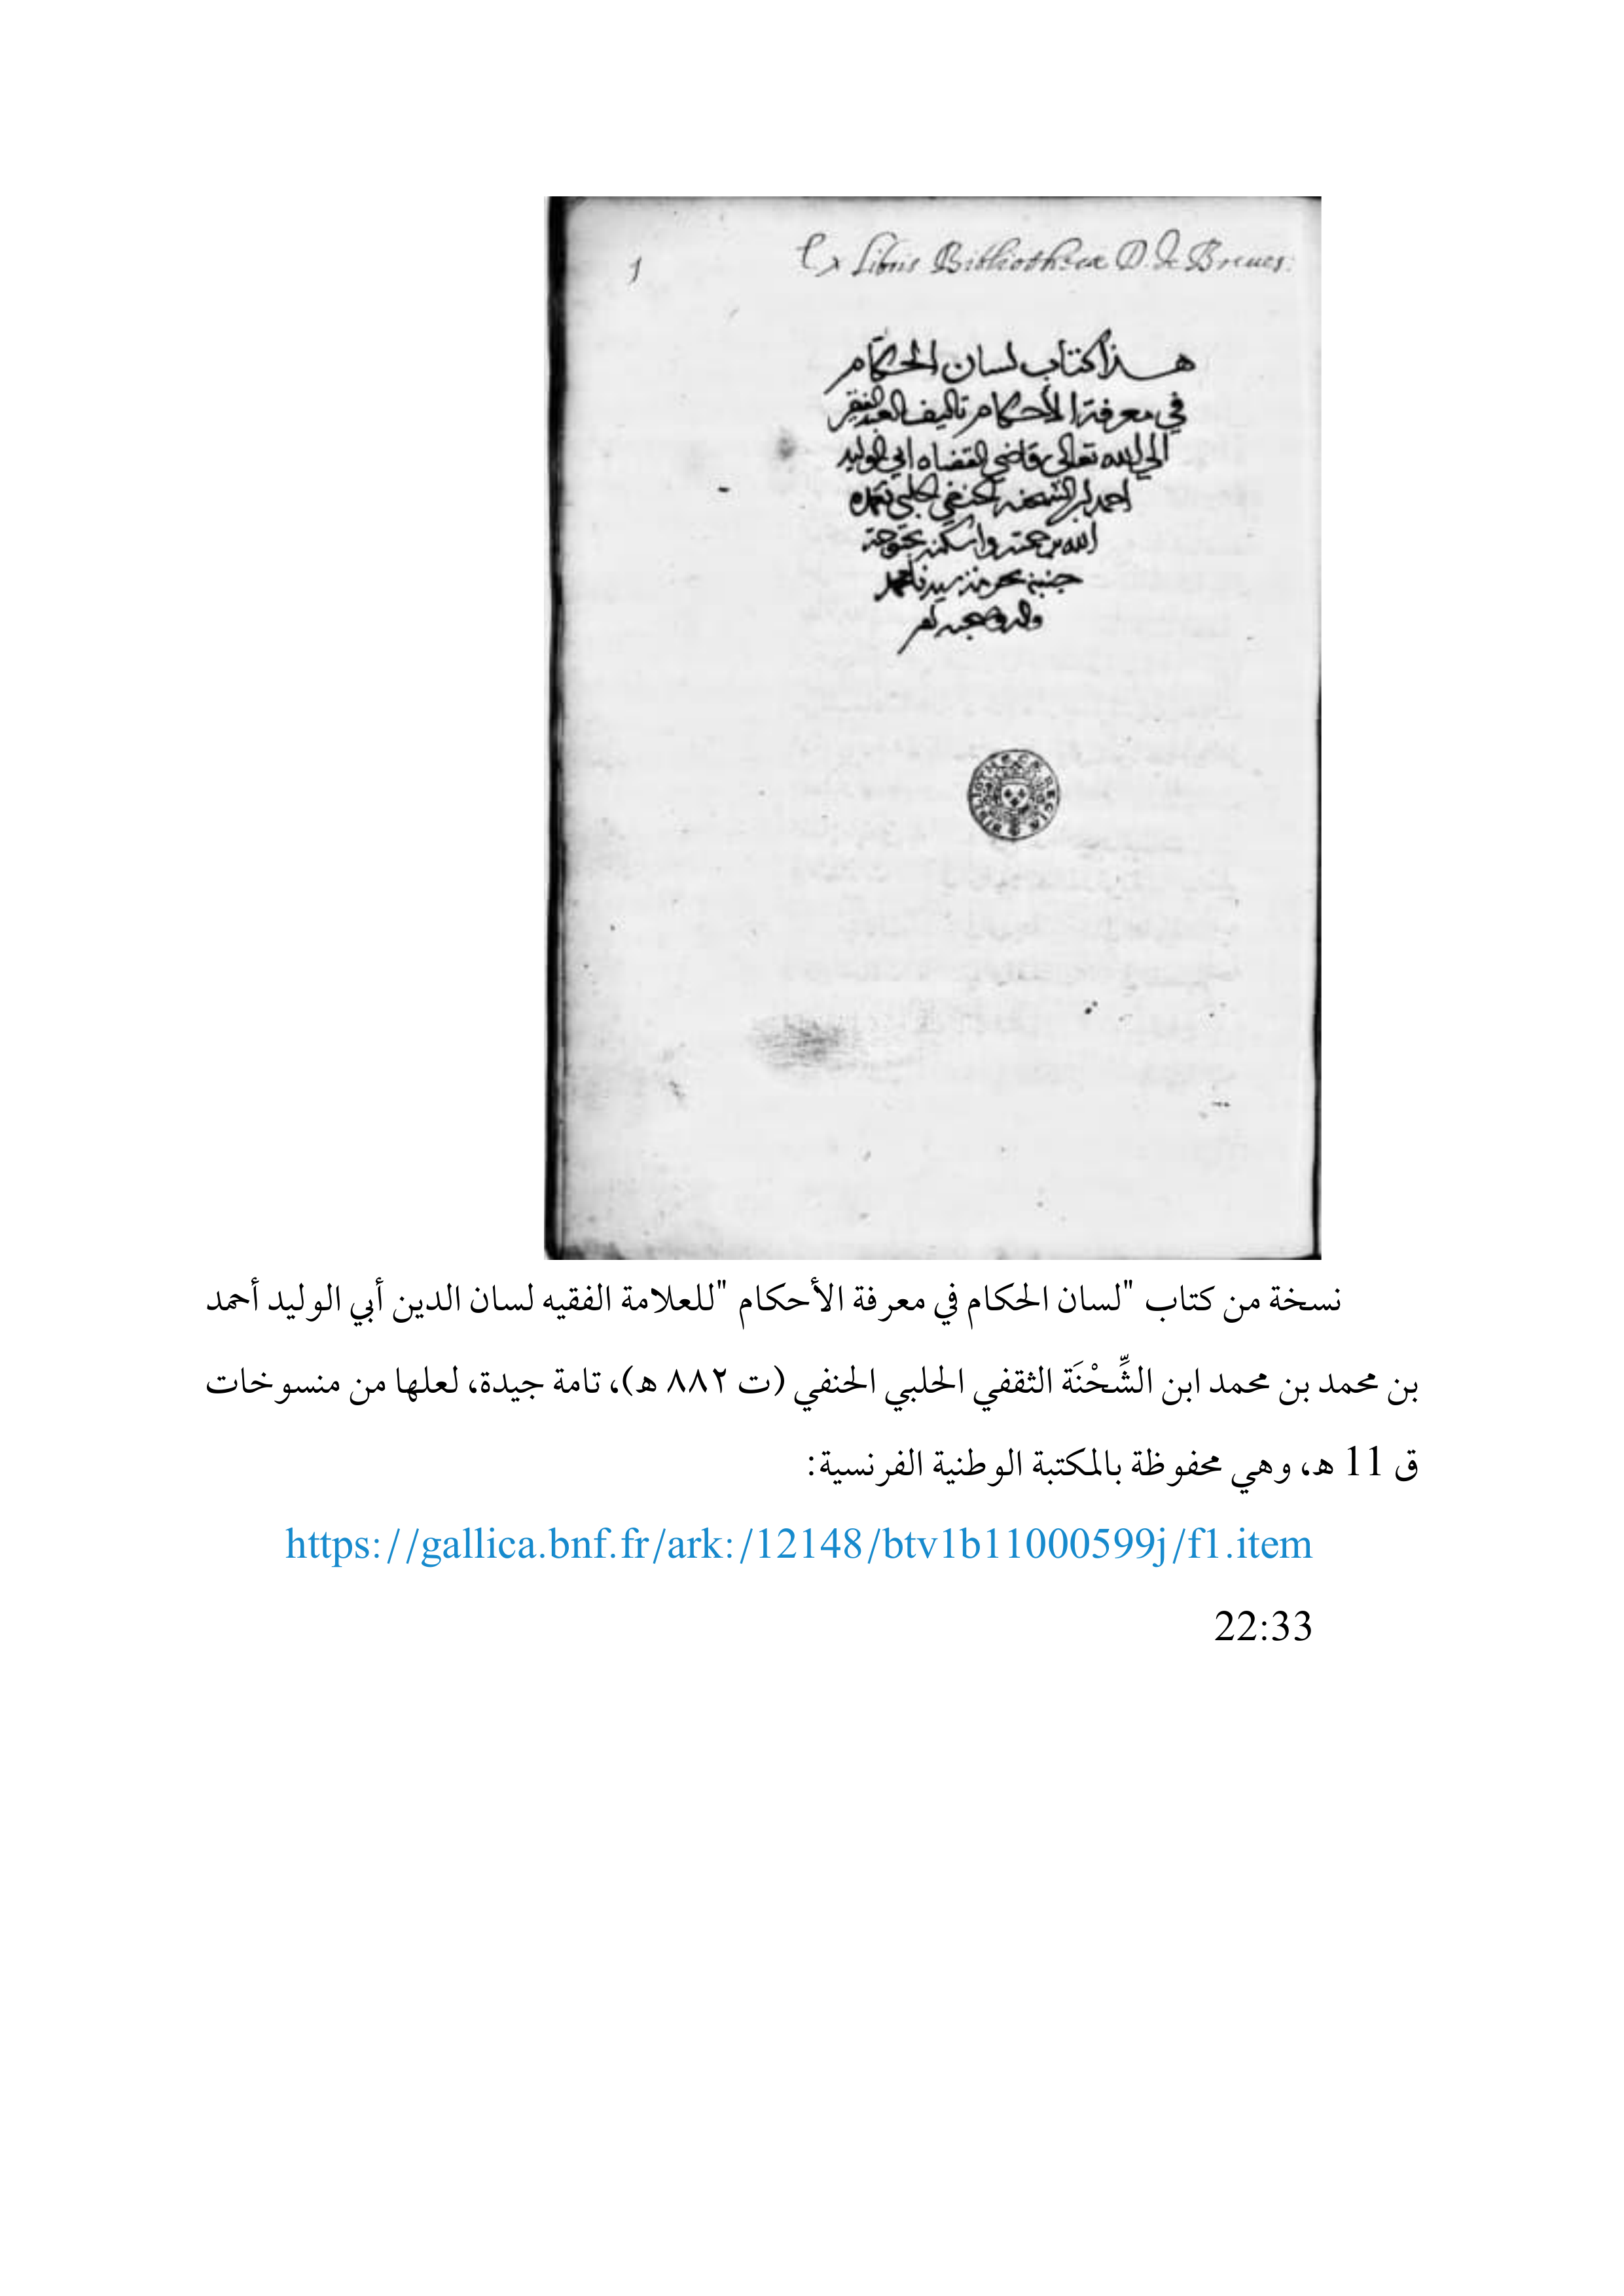 1
Ex Libris Bibliothecæ D. de Breues.
هذا كتاب لسان الحكام
في معرفة الأحكام تاليف العبد الفقير
الى الله تعالى قاضي القضاه ابي الوليد
احمد ابن الشحنه الحنفي الحلبي تغمده
الله برحمته واسكنه بحبوحة
جنته بحرمة سيدنا محمد
واله وصحبه
BIBLIOTHECÆ REGIÆ
نسخة من كتاب "لسان الحكام في معرفة الأحكام "للعلامة الفقيه لسان الدين أبي الوليد أحمد
بن محمد بن محمد ابن الشِّحْنَة الثقفي الحلبي الحنفي (ت ٨٨٢ ه)، تامة جيدة، لعلها من منسوخات
ق 11 ه، وهي محفوظة بالمكتبة الوطنية الفرنسية:
https://gallica.bnf.fr/ark:/12148/btv1b11000599j/f1.item
22:33